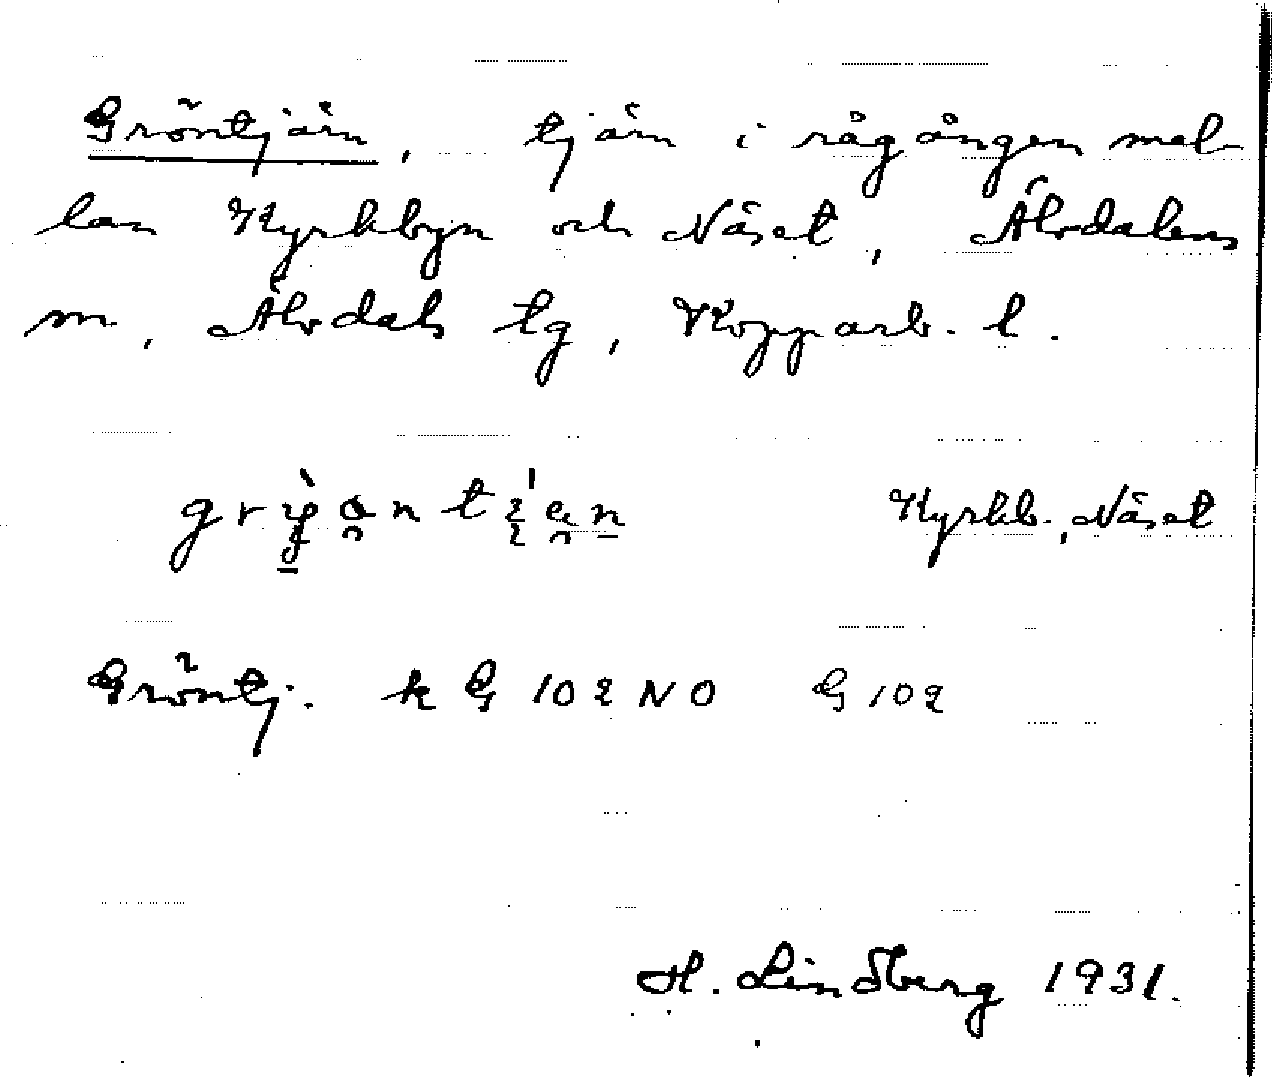 Gröntjärn, tjärn i rågången mel-
lan Kyrkbyn och Näset, Älvdalens
sn, Älvdals tg, Kopparb. l.
Kyrkb., Näset
Gröntj. k G 102 NO G 102
H. Lindberg 1931.